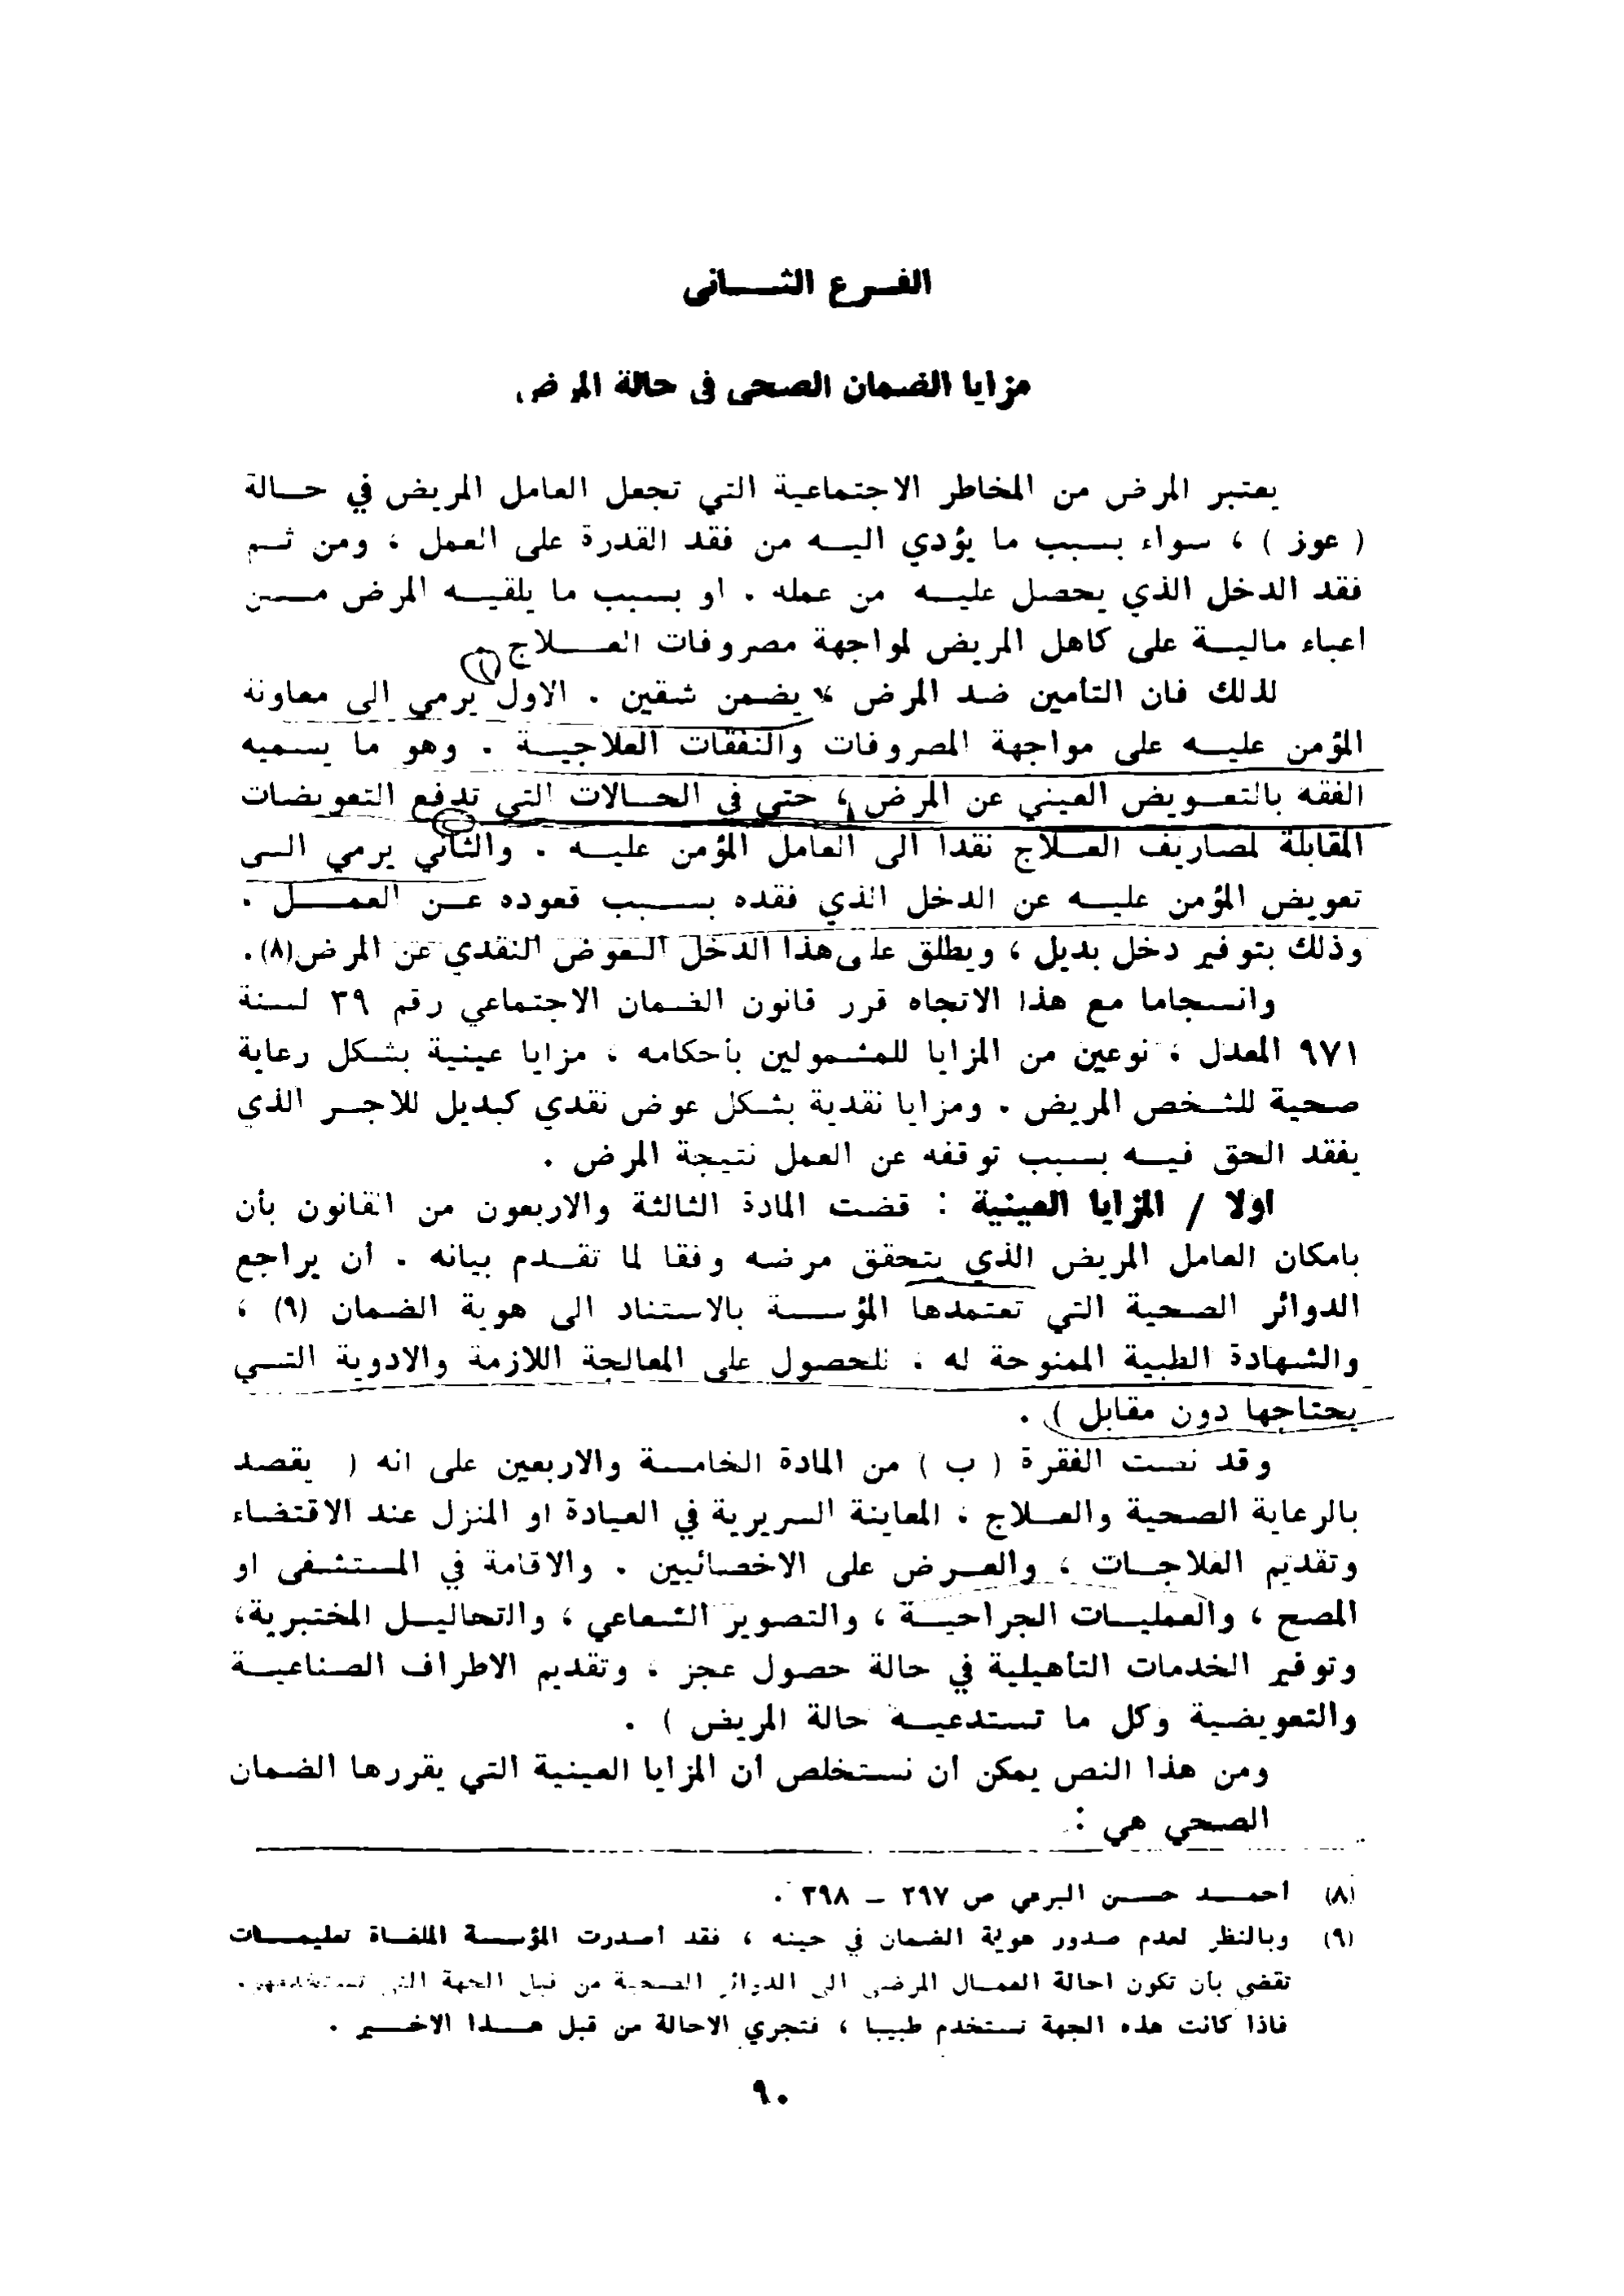 الفرع الثاني
مزايا الضمان الصحي في حالة المرض
يعتبر المرض من المخاطر الاجتماعية التي تجعل العامل المريض في حالة
( عوز ) ، سواء بسبب ما يؤدي اليه من فقد القدرة على العمل ، ومن ثم
فقد الدخل الذي يحصل عليه من عمله . او بسبب ما يلقيه المرض من
اعباء مالية على كاهل المريض لمواجهة مصروفات العلاج .
لذلك فان التأمين ضد المرض يضمن شقين . الاول يرمي الى معاونة
المؤمن عليه على مواجهة المصروفات والنفقات العلاجية . وهو ما يسميه
الفقه بالتعويض العيني عن المرض ، حتى في الحالات التي تدفع التعويضات
المقابلة لمصاريف العلاج نقدا الى العامل المؤمن عليه . والثاني يرمي الى
تعويض المؤمن عليه عن الدخل الذي فقده بسبب قعوده عن العمل .
وذلك بتوفير دخل بديل ، ويطلق على هذا الدخل العوض النقدي عن المرض(٨).
وانسجاما مع هذا الاتجاه قرر قانون الضمان الاجتماعي رقم ٣٩ لسنة
٩٧١ المعدل ، نوعين من المزايا للمشمولين بأحكامه ، مزايا عينية بشكل رعاية
صحية للشخص المريض . ومزايا نقدية بشكل عوض نقدي كبديل للاجر الذي
يفقد الحق فيه بسبب توقفه عن العمل نتيجة المرض .
اولا / المزايا العينية : قضت المادة الثالثة والاربعون من القانون بأن
بامكان العامل المريض الذي يتحقق مرضه وفقا لما تقدم بيانه . أن يراجع
الدوائر الصحية التي تعتمدها المؤسسة بالاستناد الى هوية الضمان (٩) ،
والشهادة الطبية الممنوحة له ، للحصول على المعالجة اللازمة والادوية التي
يحتاجها دون مقابل ) .
وقد نصت الفقرة ( ب ) من المادة الخامسة والاربعين على انه ( يقصد
بالرعاية الصحية والعلاج ، المعاينة السريرية في العيادة او المنزل عند الاقتضاء
وتقديم العلاجات ، والعرض على الاخصائيين . والاقامة في المستشفى او
المصح ، والعمليات الجراحية ، والتصوير الشعاعي ، والتحاليل المختبرية،
وتوفير الخدمات التأهيلية في حالة حصول عجز ، وتقديم الاطراف الصناعية
والتعويضية وكل ما تستدعيه حالة المريض ) .
ومن هذا النص يمكن ان نستخلص أن المزايا العينية التي يقررها الضمان
الصحي هي :
(٨) أحمد حسن البرعي ص ٢٩٧ – ٢٩٨ .
(٩) وبالنظر لعدم صدور هوية الضمان في حينه ، فقد أصدرت المؤسسة الملغاة تعليمات
تقضي بأن تكون احالة العمال المرضى الى الدوائر الصحية من قبل الجهة التي تستخدمهم .
فاذا كانت هذه الجهة تستخدم طبيبا ، فتجري الاحالة من قبل هذا الاخير .
٩٠